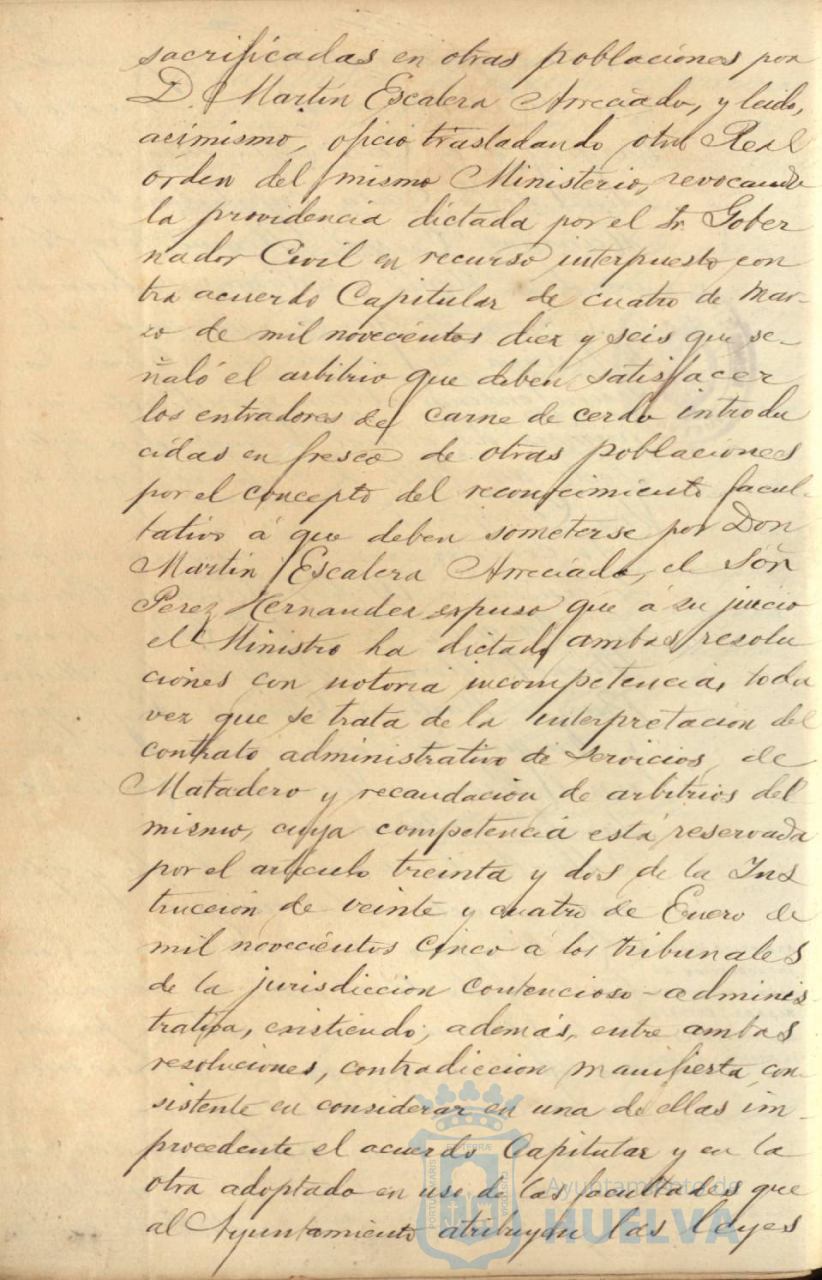 sacrificadas en otras poblaciones por
D. Martín Escalera Arreciado, y leido,
acimismo, oficio trasladando otra Real
órden del mismo Ministerio, revocando
la providencia dictada por el Sr. Gober
nador Civil en recurso interpuesto con
tra acuerdo Capitular de cuatro de Mar-
zo de mil novecientos diez y seis que se-
ñaló el arbitrio que deben satisfacer
los entradores de carne de cerdo introdu
cidas en fresco de otras poblaciones
por el concepto del reconocimiento facul-
tativo á que deben someterse por Don
Martín Escalera Arreciado, el Señor
Perez Hernandez expuso que á su juicio
el Ministro ha dictado ambas resolu
ciones con notoria incompetencia, toda
vez que se trata de la interpretación del
contrato administrativo de servicios de
Matadero y recaudación de arbitrios del
mismo, cuya competencia está reservada
por el artículo treinta y dos de la Ins
trucción de veinte y cuatro de Enero de
mil novecientos cinco á los tribunales
de la jurisdicción contencioso-adminis
trativa, existiendo, además, entre ambas
resoluciones, contradiccion manifiesta, con-
sistente en considerar en una de ellas im-
procedente el acuerdo Capitular y en la
otra adoptado en uso de las facultades que
al Ayuntamiento atribuyen las leyes
Ayuntamiento de
HUELVA